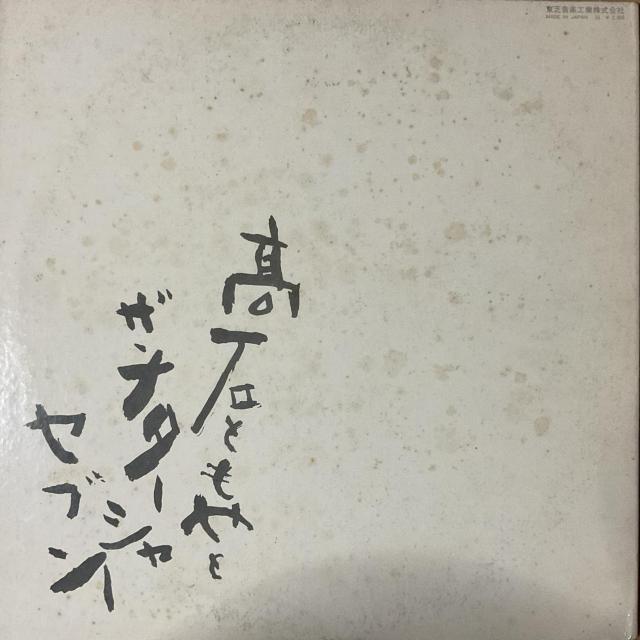 東芝音楽工業株式会社
MADE IN JAPAN
高石ともやと
ザ・ナターシャー
セブン